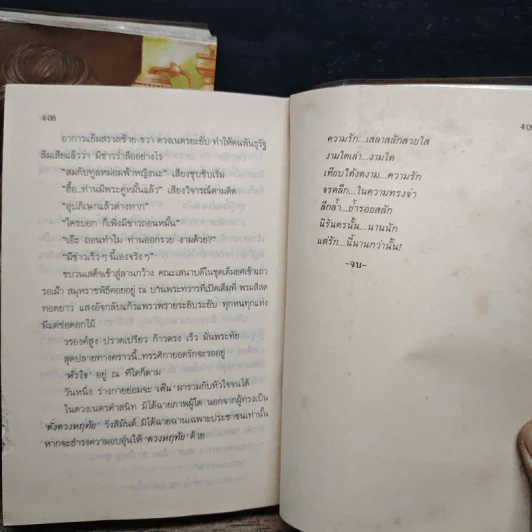 408
อาการแย้มสรวลซ้าย-ขวา ดวงเนตรระยับ ทำให้คนพันธุรัฐ
ลืมเสียแล้วว่า มีข่าวร่ำลืออย่างไร
"สมกับทูลหม่อมฟ้าหญิงนะ" เสียงซุบซิบเริ่ม
"ฮื้อ..ท่านมีพระคู่หมั้นแล้ว" เสียงวิจารณ์ตามติด
"อุปภิเษกแล้วต่างหาก"
"ใครบอก ก็เพิ่งมีข่าวถอนหมั้น"
"เอ๊ะ ถอนทำไม ท่านออกรวย งามด้วย?"
"มีข่าวเร็ว ๆ นี้เองจริง ๆ"
ขบวนเสด็จเข้าสู่ลานกว้าง คณะเสนาบดีในชุดเต็มยศเข้าแถว
รอเฝ้า สมุหราชพิธีคอยอยู่ ณ บานพระทวารที่เปิดเต็มที่ พรมสีสด
ทอดยาว แสงอัจกลับแก้วแพรวพรายระยิบระยับ ทุกหนทุกแห่ง
มีแต่ช่อดอกไม้
วรองค์สูง ปราดเปรียว ก้าวตรง เร็ว มั่นพระทัย
สุดปลายทางคราวนี้..ทรรศิกายอดรักจะรออยู่
'หัวใจ' อยู่ ณ ที่ใดก็ตาม
วันหนึ่ง ร่างกายย่อมจะ 'เดิน' มารวมกับหัวใจจนได้
ในดวงเนตรดำสนิท มิได้ฉายภาพผู้ใด นอกจากผู้ทรงเป็น
'ดั่งดวงหฤทัย' รังสิมันต์..มิได้ฉายฉานเฉพาะประชาชนเท่านั้น
หากจะธำรงความอบอุ่นให้ 'ดวงหฤทัย' ด้วย
409
ความรัก...เสลาสลักสวยใส
งามใดเล่า...งามใด
เทียบได้งดงาม...ความรัก
จรดลึก...ในความทรงจำ
ลึกล้ำ...ย้ำรอยสลัก
นิรันดรนั้น...นานนัก
แต่รัก...นี้นานกว่านั้น!
-จบ-